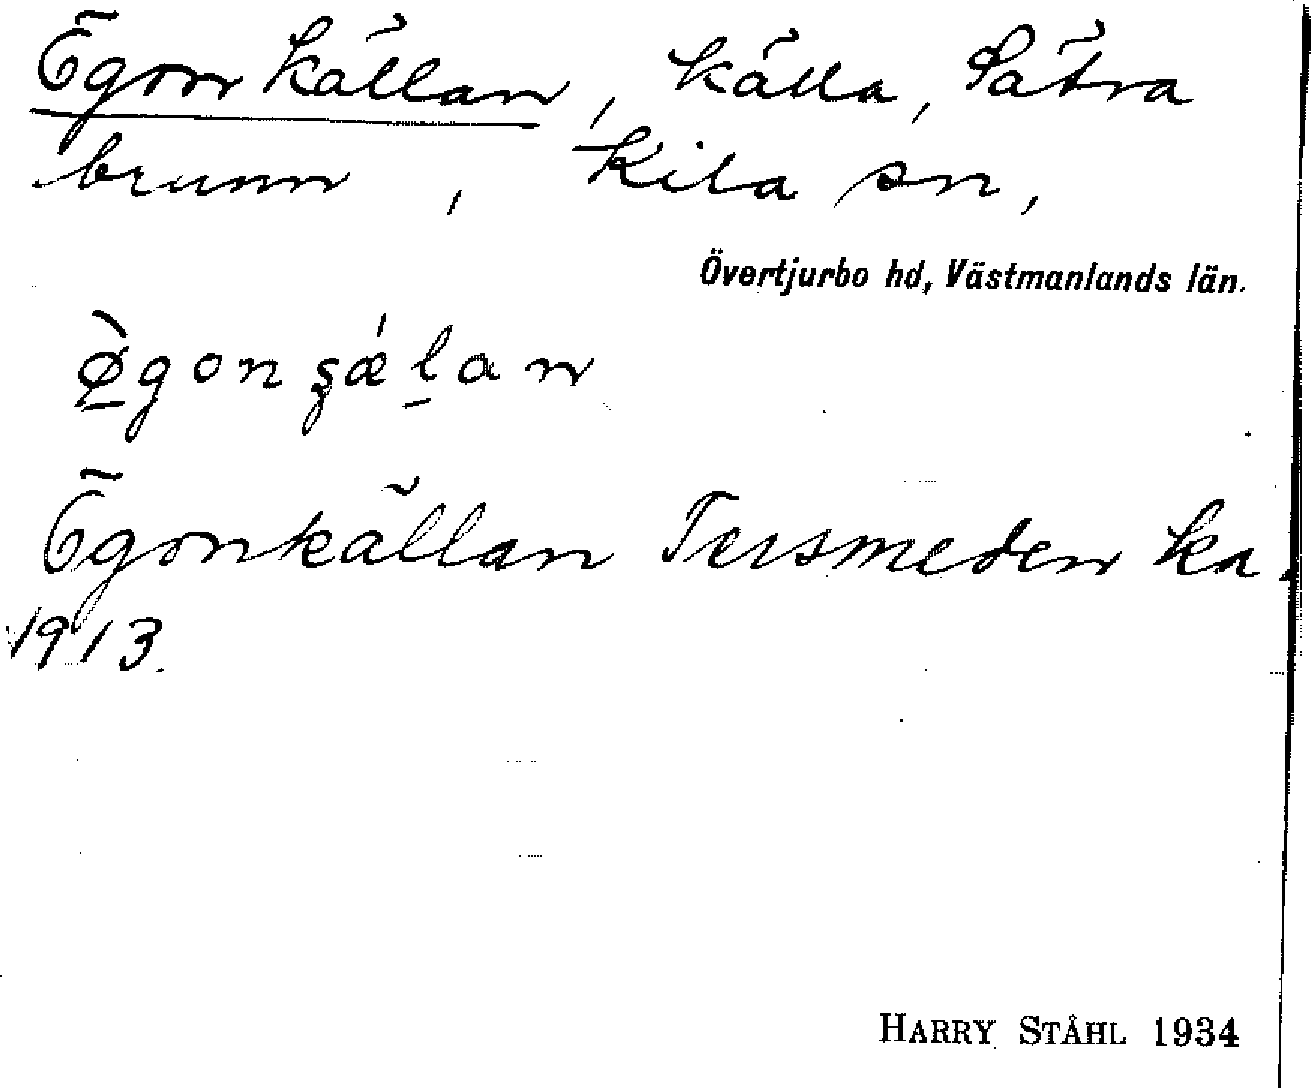 Ögonkällan, källa, Sätra
brunn, Kila sn,
Övertjurbo hd, Västmanlands län.
Ögonkällan Tersmeden ka.
1913.
HARRY STÅHL 1934